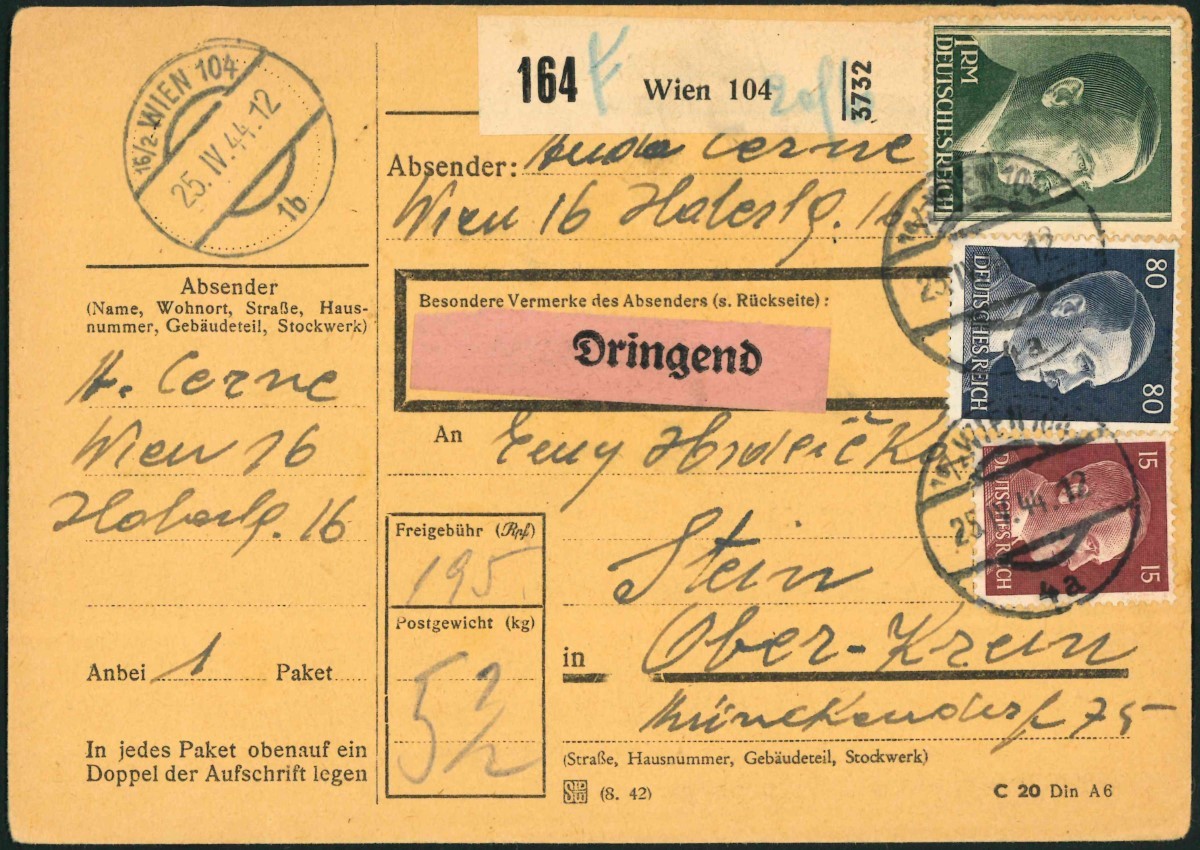 16/2 WIEN 104
25.IV.44.12
1b
164
Wien 104
3732
1RM
DEUTSCHES REICH
Absender: Cerne
Wien 16 Haberlg. 16
WIEN 104
12
4a
80
DEUTSCHES REICH
80
Besondere Vermerke des Absenders (s. Rückseite):
Dringend
Absender
(Name, Wohnort, Straße, Haus-
nummer, Gebäudeteil, Stockwerk)
A. Cerne
Wien 16
Haberlg. 16
An
WIEN 104
25.IV.44.12
4a
15
DEUTSCHES REICH
15
Freigebühr (Rpf)
195
Stein
Postgewicht (kg)
5 1/2
in Ober-Krein
Münkendorf 75
(Straße, Hausnummer, Gebäudeteil, Stockwerk)
Anbei 1 Paket
In jedes Paket obenauf ein
Doppel der Aufschrift legen
(8. 42)
C 20 Din A6